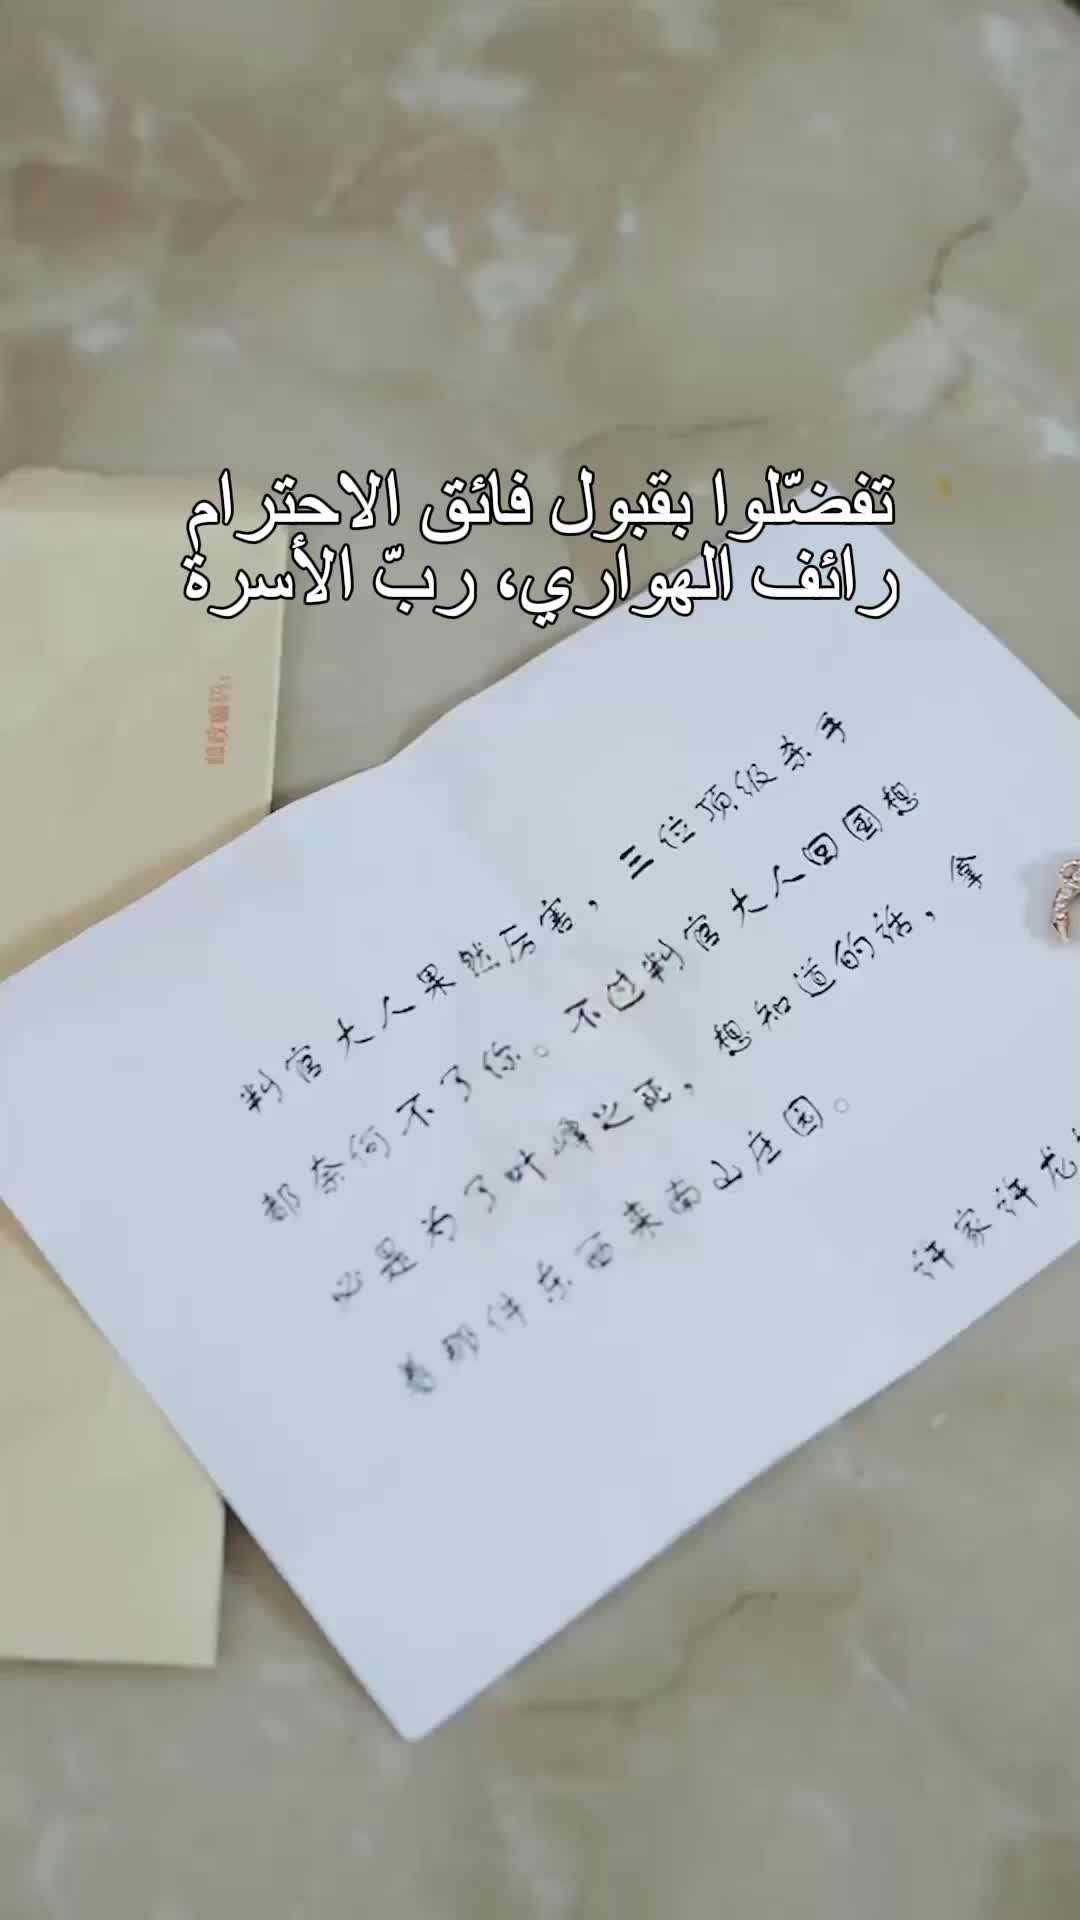 تفضّلوا بقبول فائق الاحترام
رائف الهواري، ربّ الأسرة
邮政编码：
判官大人果然厉害，三位顶级杀手
都奈何不了你。不过判官大人回国想
必是为了叶峰之死，想知道的话，拿
着那件东西来南山庄园。
许家许龙